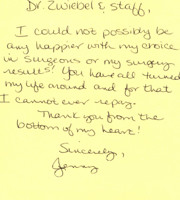 Dr. Zwiebel & staff,
I could not possibly be
any happier with my choice
in surgeons or my surgery
results! You have all turned
my life around and for that
I cannot ever repay.
Thank you from the
bottom of my heart!
Sincerely,
Jenny